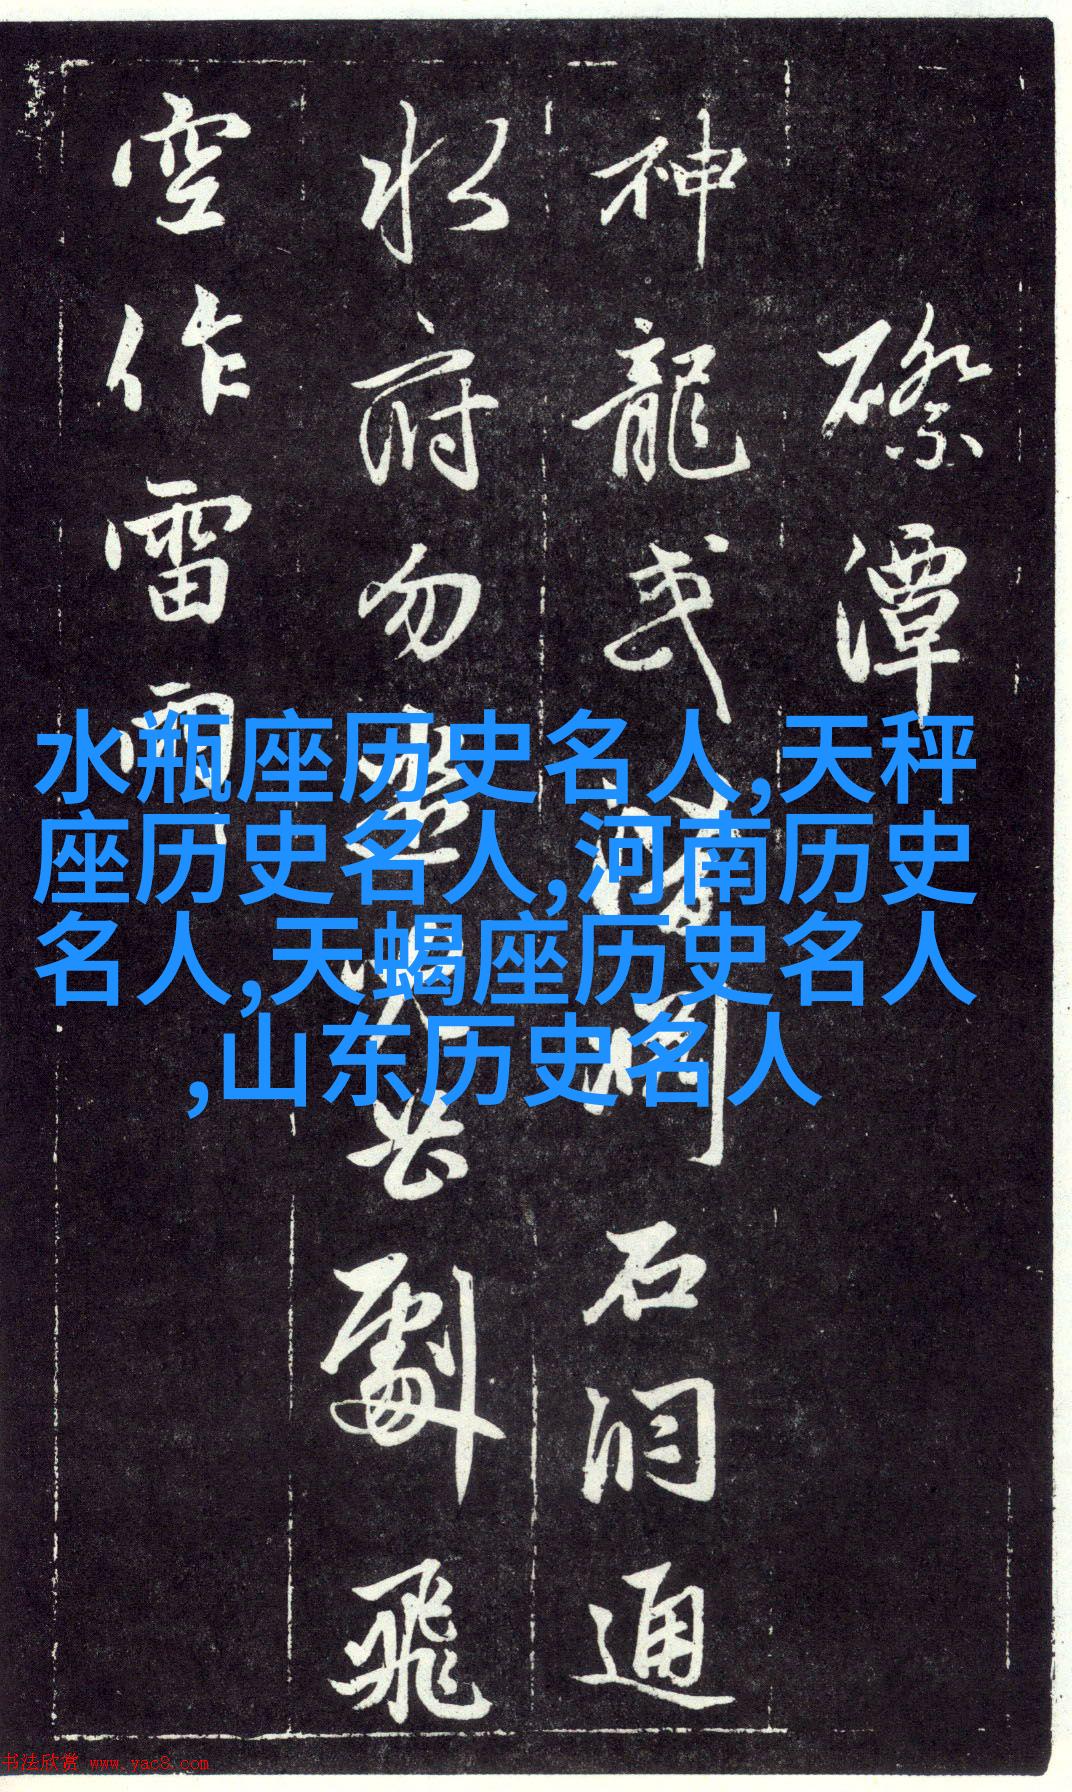 潭
神龍或石洞通
水府勿劇飛
空作雷雨
水瓶座历史名人,天秤
座历史名人,河南历史
名人,天蝎座历史名人
,山东历史名人
书法欣赏 www.yac8.com